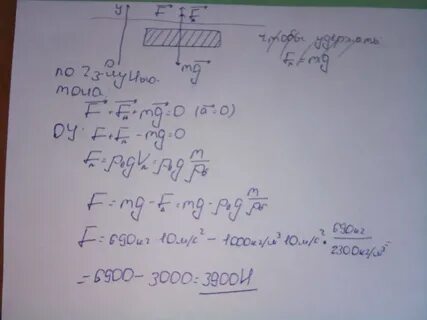 y F Fₐ
чтобы удержать
Fₐ = mg
mg
0
по 2 з-ну Нью-
тона
F + Fₐ + mg = 0 (a = 0)
OY: F + Fₐ - mg = 0
Fₐ = ρв g Vₙ = ρв g m/ρδ
F = mg - Fₐ = mg - ρв g m/ρδ
F = 690кг · 10м/с² - 1000кг/м³ 10м/с² · 690кг/2300кг/м³
= 6900 - 3000 = 3900Н